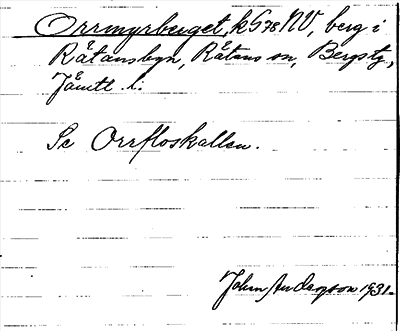 Orrmyrberget, k G 78 NV, berg i
Råtansbyn, Råtans sn, Bergs tg,
Jämtl. l.
Se Orrfloskallen.
John Anderson 1931.